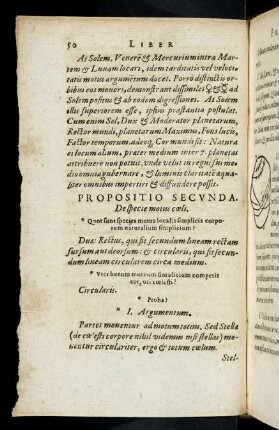 50 LIBER
At Solem, Venerẽ & Mercurium intra Mar-
tem & Lunam locari, idem tarditatis vel veloci-
tatis motus argumẽtum docet. Porro distinctis or-
bibus eos moueri, demonstrant dissimiles ☿ & ♀ ad
Solem positus & ab eodem digressiones. At Solem
illis superiorem esse, ipsius præstantia postulat.
Cum enim Sol, Dux & Moderator planetarum,
Rector mundi, planetarum Maximus, Fons lucis,
Factor temporum, adeoq, Cor mundi sit: Natura
ei locum alium, præter medium inter 7 planetas
attribuere non potuit, vnde velut in regni sui me-
dio omnia gubernare, & luminis claritatẽ æqua-
liter omnibus impertiri & diffundere posset.
PROPOSITIO SECVNDA.
De specie motus cœli.
* Quot sunt species motus localis simplicis corpo-
rum naturalium simplicium?
Duæ: Rectus, qui fit secundum lineam rectam
sursum aut deorsum: & circularis, qui fit secun-
dum lineam circularem circa medium.
* Vter horum motuum simplicium competit
cœlesti?
Circularis.
* Proba?
* I. Argumentum.
Partes mouentur ad motum totius, Sed Stellæ
(de cœlesti corpore nihil videmus nisi stellas) mo-
uentur circulariter, ergo & totum cœlum.
Stel-